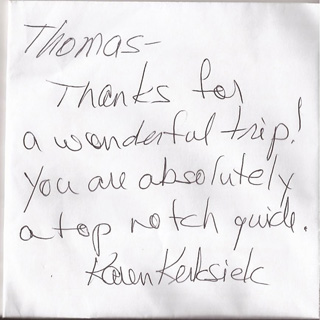 Thomas-
Thanks for
a wonderful trip!
You are absolutely
a top notch guide.
Karen Kerksiek